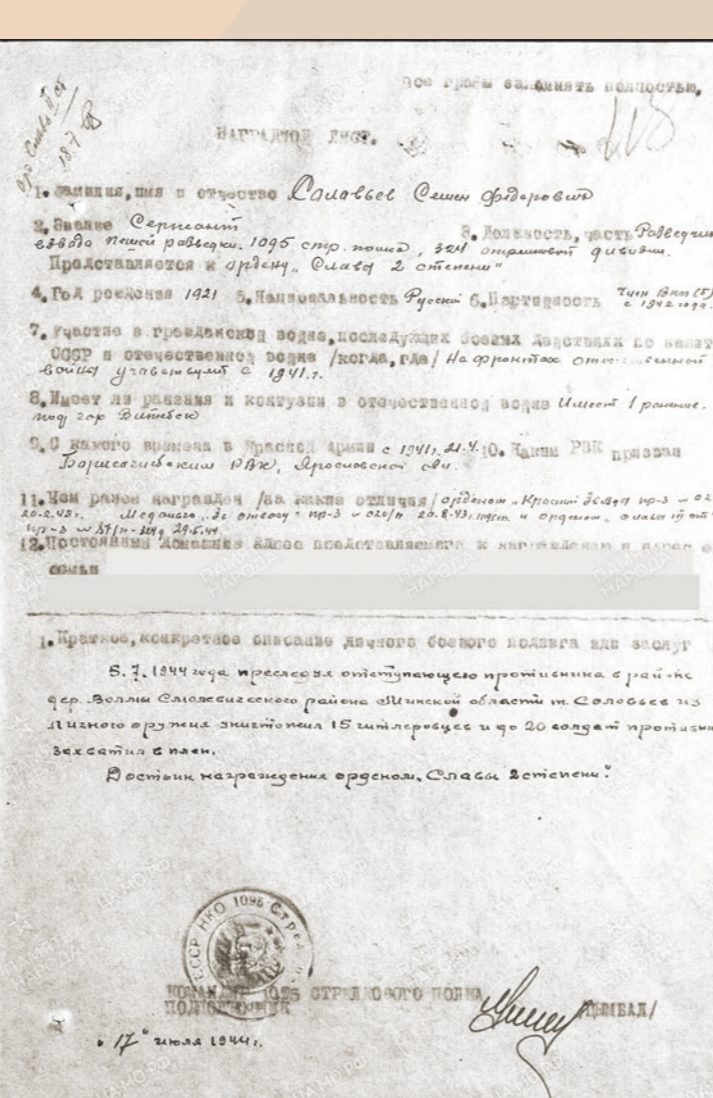 Все графы заполнять полностью.
Орд. Слава II ст
18.7
НАГРАДНОЙ ЛИСТ.
1. Фамилия, имя и отчество Соловьев Семен Федорович
2. Звание Сержант
3. Должность, часть Разведчик
взвода пешей разведки. 1095 стр. полка, 324 стрелковой дивизии.
Представляется к ордену „Слава 2 степени"
4. Год рождения 1921 5. Национальность Русский 6. Партийность Член ВКП(б)
с 1942 года.
7. Участие в гражданской войне, последующих боевых действиях по защите
СССР и отечественной войне /когда, где/ На фронтах отечественной
войны участвует с 1941 г.
8. Имеет ли ранения и контузии в отечественной войне Имеет 1 ранение.
под гор Витебск
9. С какого времени в Красной Армии с 1941 г. 21.4. 10. Каким РВК призван
Борисоглебским РВК, Ярославской обл.
11. Чем ранее награжден /за какие отличия/ орденом „Красной Звезда пр-з №
20.8.43 г. Медалью „За отвагу" пр-з № 020/н 20.8.43, и орденом „Слава III ст
пр-з № 37/н 29.5.44
12. Постоянный домашний адрес представляемого к награждению и адрес е
семьи
1. Краткое, конкретное описание личного боевого подвига или заслуг
5.7.1944 года преследуя отступающего противника в районе
дер. Волмы Смолевичского района Минской области т. Соловьев из
личного оружия уничтожил 15 гитлеровцев и до 20 солдат противни
захватил в плен.
Достоин награждения орденом „Славы 2 степени".
СССР НКО 1095 Стрел
КОМАНДИР 1095 СТРЕЛКОВОГО ПОЛКА
ПОДПОЛКОВНИК /ЦЫМБАЛ/
„17" июля 1944 г.
ПАМЯТЬ НАРОДА
ЦАМО.РФ